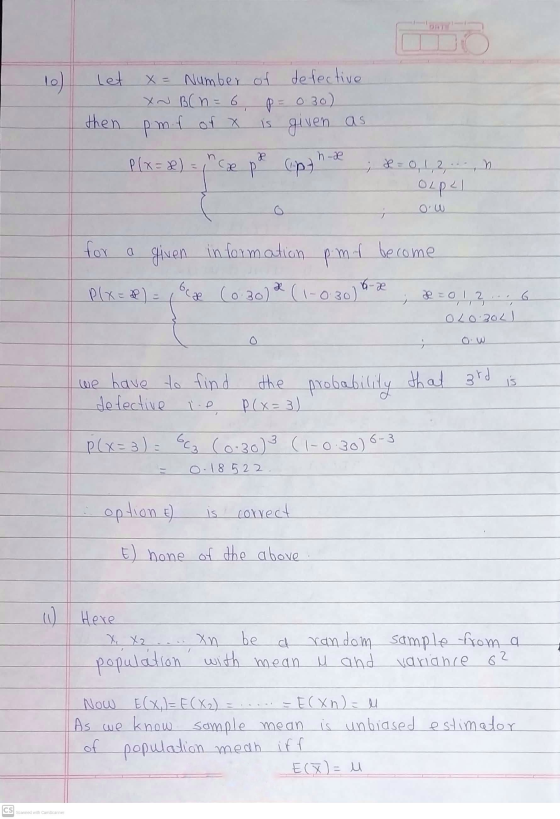 10) Let X = Number of defective
X ~ B(n = 6, p = 0.30)
then pmf of x is given as
P(X=x) = { ⁿCx pˣ (1-p)ⁿ⁻ˣ ; x = 0,1,2, ..., n
0<p<1
0 ; o.w
for a given information pmf become
P(X=x) = { ⁶Cx (0.30)ˣ (1-0.30)⁶⁻ˣ ; x = 0,1,2, ..., 6
0<0.30<1
0 ; o.w
we have to find the probability that 3rd is
defective i.e. P(X=3)
P(X=3) = ⁶C₃ (0.30)³ (1-0.30)⁶⁻³
= 0.18522
∴ option E) is correct
E) none of the above.
11) Here
X₁ X₂ ..... Xn be a random sample from a
population with mean μ and variance σ²
Now E(X₁)=E(X₂) = ...... = E(Xn) = μ
As we know sample mean is unbiased estimator
of population mean iff
E(X̄) = μ
CS Scanned with CamScanner